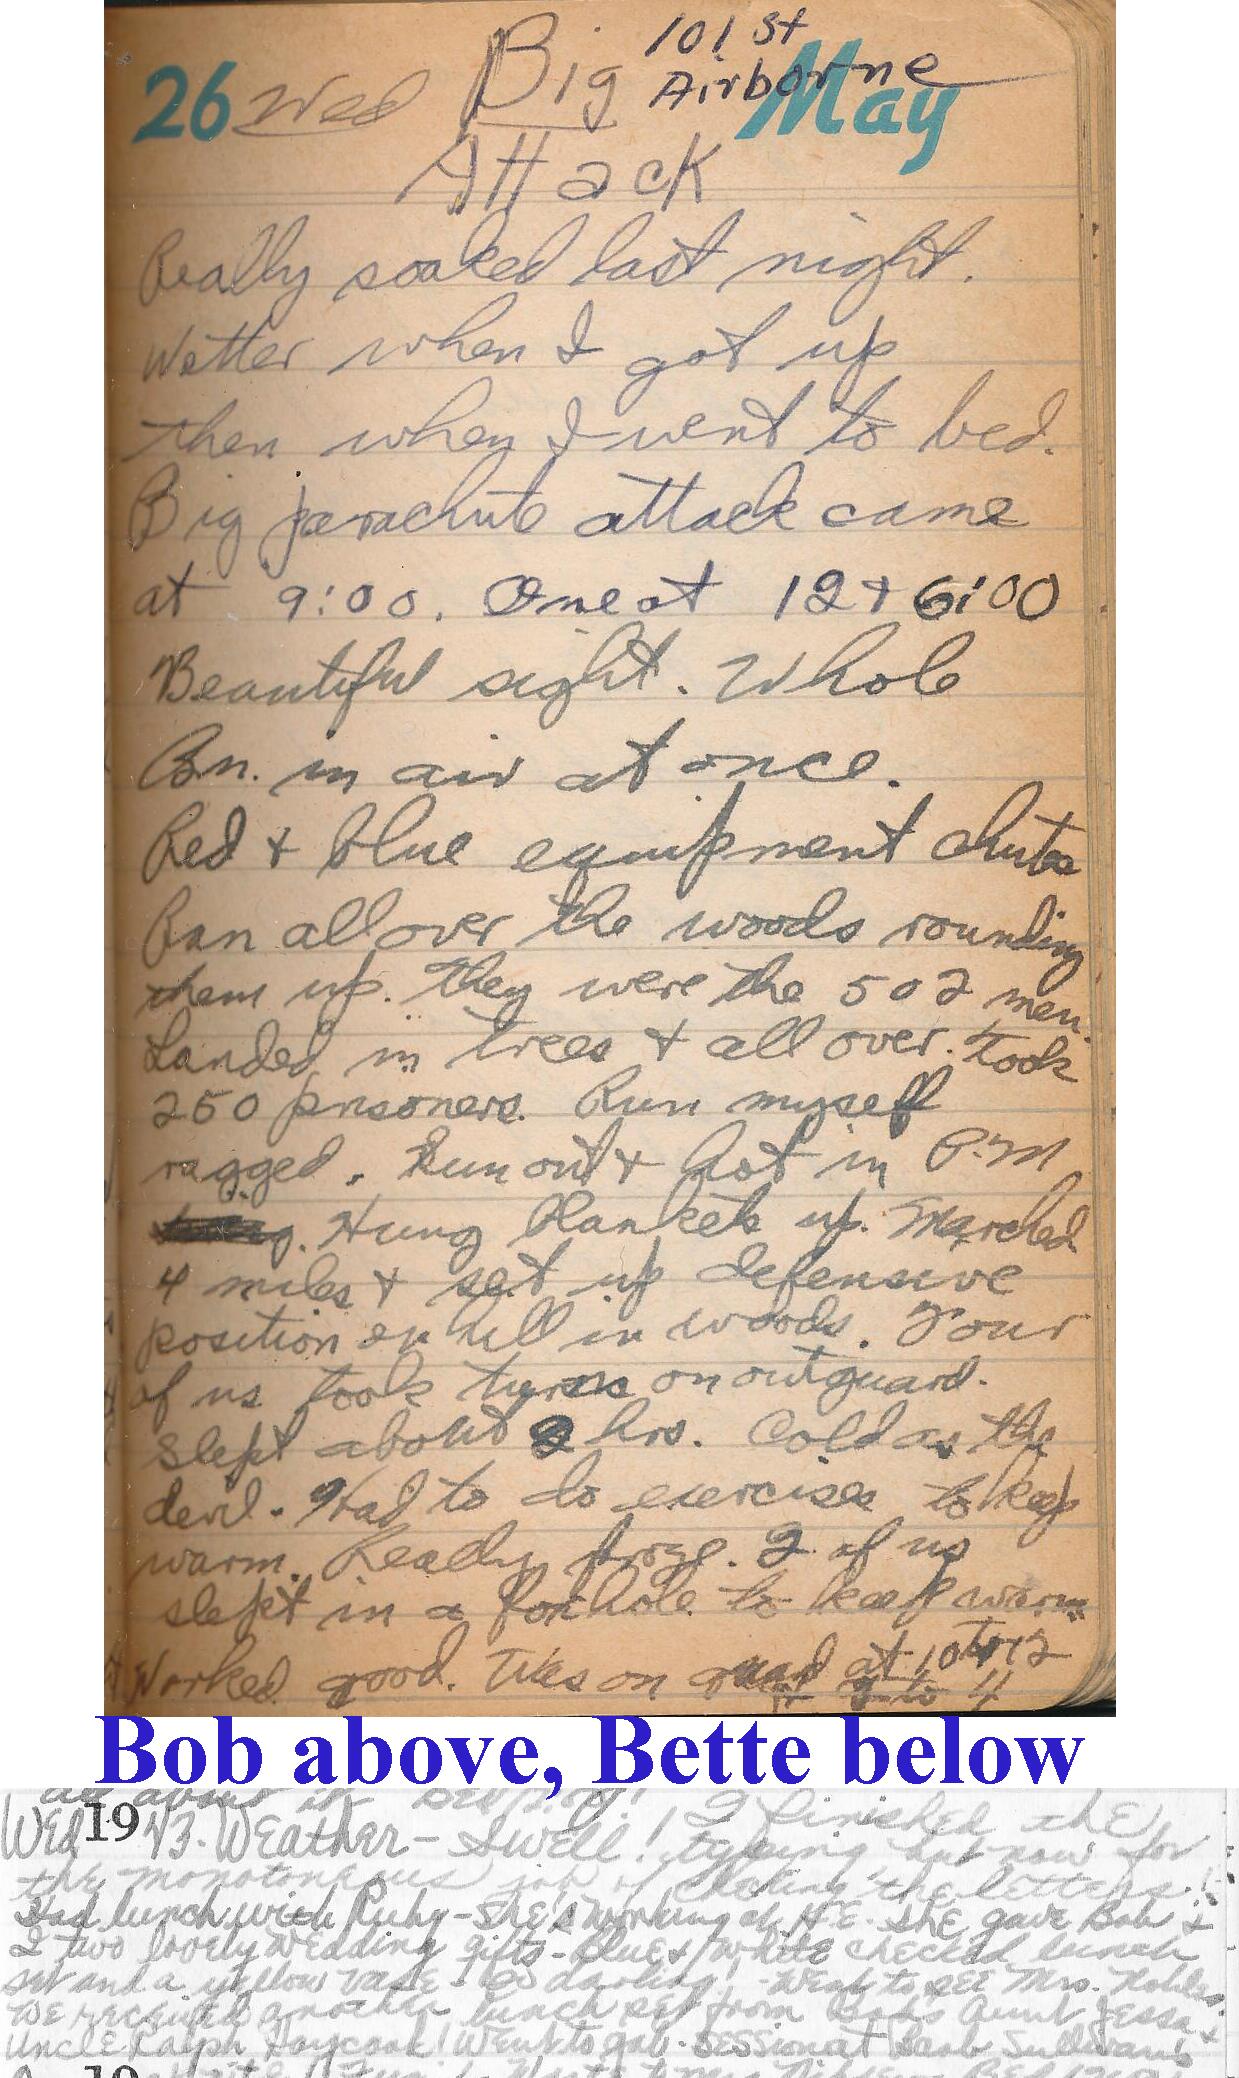 26 Wed Big 101st Airborne May
Attack
Really soaked last night.
Wetter when I got up
then when I went to bed.
Big parachute attack came
at 9:00. One at 12 + 6:00
Beautiful sight. Whole
Bn. in air at once.
Red + blue equipment chutes
Ran all over the woods rounding
them up. They were the 502 men.
Landed in trees + all over. Took
250 prisoners. Run myself
ragged. Sun out + hot in P.M
Hung blankets up. Marched
4 miles + set up defensive
position on hill in woods. Four
of us took turns on outguard.
Slept about 2 hrs. Cold as the
devil. Had to do exercises to keep
warm. Really froze. 2 of us
slept in a foxhole to keep warm
Worked good. Was on guard at 10 to 12
2 to 4
Bob above, Bette below
all about it
19
Wed 43. Weather - Swell! I finished the
typing but now for
the monotonous job of checking the letters!
Had lunch with Ruby - She's working at H.E. She gave Bob +
I two lovely wedding gifts - Blue + white checked lunch
set and a yellow vase - so darling! - Went to see Mrs.
We received another lunch set from Bob's Aunt Jessa +
Uncle Ralph Haycook! Went to gab-session at Barb Sullivan's
19